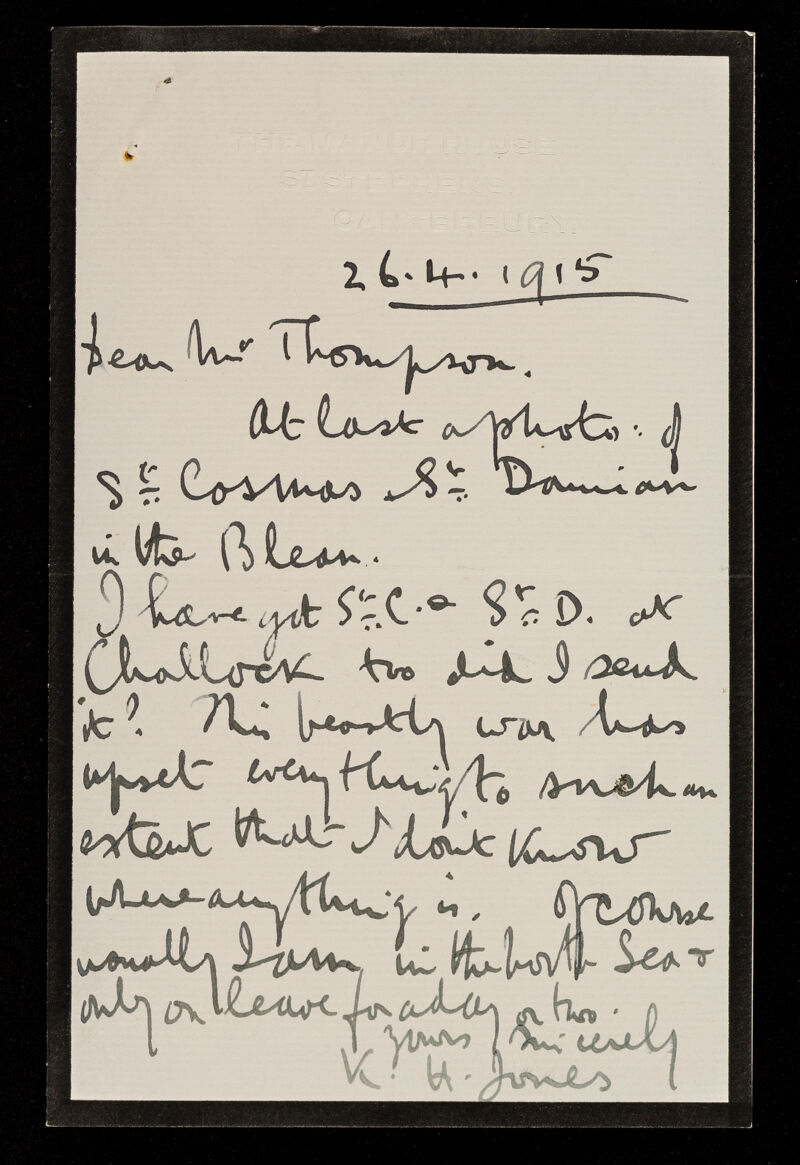 THE MANOR HOUSE
ST STEPHENS,
CANTERBURY.
26.4.1915
Dear Mr Thompson.
At last a photo: of
St Cosmas & St Damian
in the Blean.
I have got St C. & St D. at
Challock too did I send
it? This beastly war has
upset everything to such an
extent that I don't know
where anything is. Of course
usually I am in the North Sea &
only on leave for a day or two.
yours sincerely
K. H. Jones